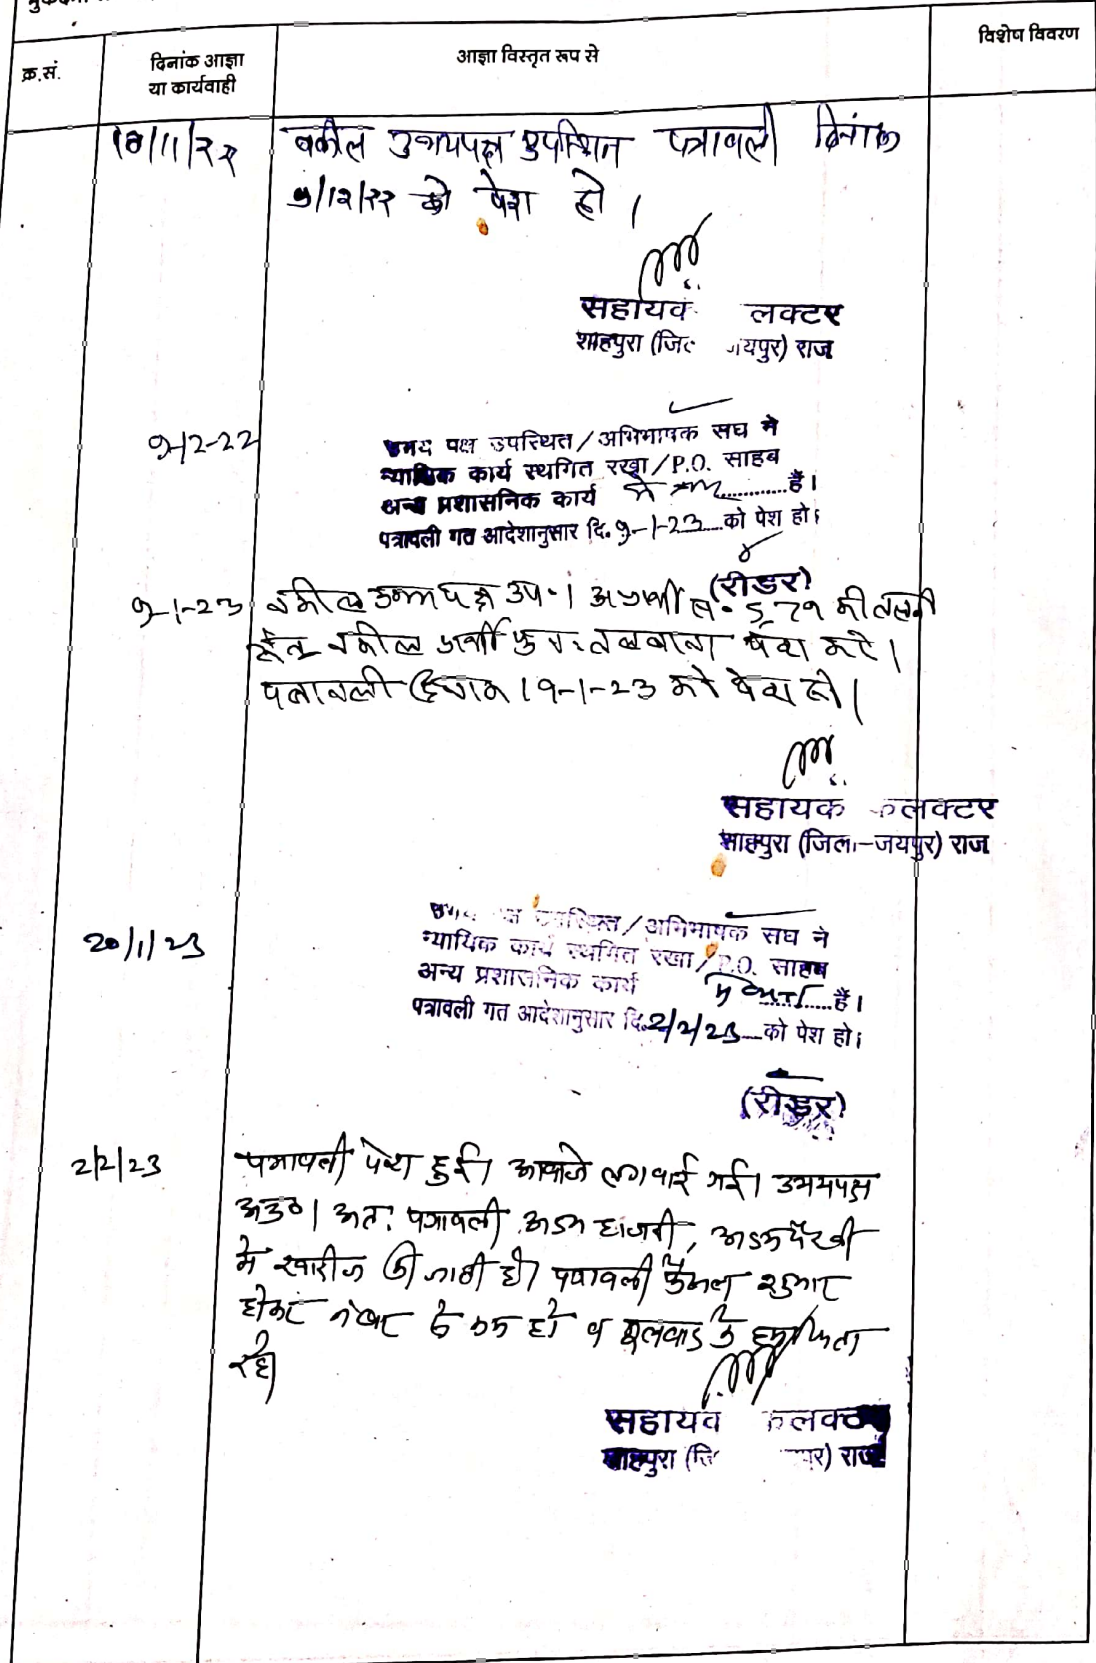 क्र.सं.
दिनांक आज्ञा
या कार्यवाही
आज्ञा विस्तृत रूप से
विशेष विवरण
18/11/22
वकील उभयपक्ष उपस्थित पत्रावली दिनांक
9/12/22 को पेश हो।
सहायक लक्टर
शाहपुरा (जिल जयपुर) राज
9-12-22
उभय पक्ष उपस्थित/अभिभाषक सघ ने
न्यायिक कार्य स्थगित रखा/P.O. साहब
अन्य प्रशासनिक कार्य में है।
पत्रावली गत आदेशानुसार दि. 9-1-23 को पेश हो।
(रीडर)
9-1-23
वकील उभयपक्ष उप.। अप्रार्थी सं. 5, 79 की तलबी
हेतु वकील प्रार्थी पुनः तलबाना पेश करे।
पत्रावली दिनांक 19-1-23 को पेश हो।
सहायक कलक्टर
शाहपुरा (जिला-जयपुर) राज
20/1/23
उभय पक्ष उपस्थित/अभिभाषक सघ ने
न्यायिक कार्य स्थगित रखा/P.O. साहब
अन्य प्रशासनिक कार्य में व्यस्त है।
पत्रावली गत आदेशानुसार दि. 2/2/23 को पेश हो।
(रीडर)
2/2/23
पत्रावली पेश हुई। आवाजे लगवाई गई। उभयपक्ष
अउ०। अतः पत्रावली अदम हाजरी, अदम पैरवी
में खारीज की जाती है। पत्रावली फैसल शुमार
होकर नंबर से कम हो व
रहे।
सहायक कलक्टर
शाहपुरा (जि पुर) राज